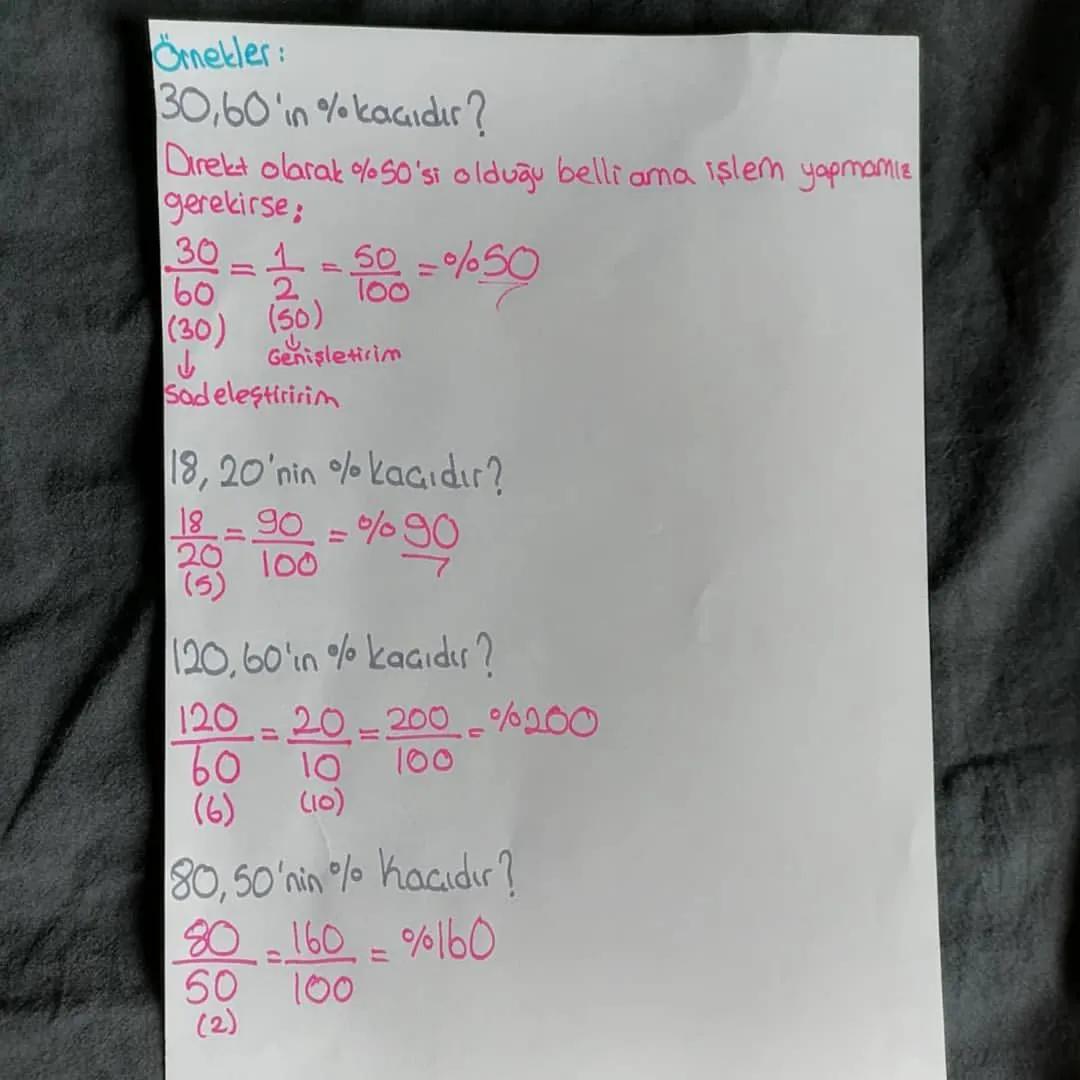 Örnekler:
30,60'ın % kaçıdır?
Direkt olarak %50'si olduğu belli ama işlem yapmamız
gerekirse;
30/60 = 1/2 = 50/100 = %50
(30) (50)
↓ ↓
Genişletirim
Sadeleştiririm
18, 20'nin % kaçıdır?
18/20 = 90/100 = %90
(5)
120, 60'ın % kaçıdır?
120/60 = 20/10 = 200/100 = %200
(6) (10)
80, 50'nin % kaçıdır?
80/50 = 160/100 = %160
(2)